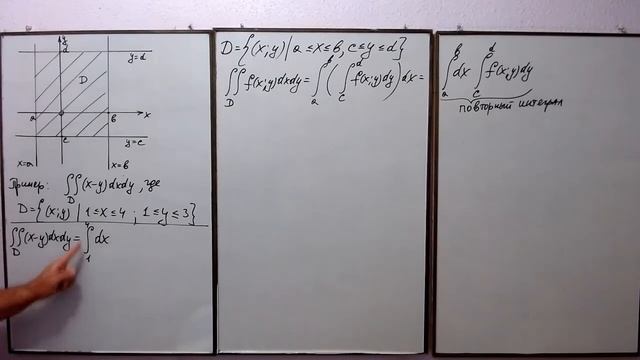 y
d
y=d
D
a
b
x
c
y=c
x=a
x=b
Пример: ∬_D (x-y)dxdy, где
D={(x;y) | 1≤x≤4 ; 1≤y≤3}
∬_D (x-y)dxdy = ∫_1^4 dx
D={(x;y) | a≤x≤b, c≤y≤d}
∬_D f(x;y)dxdy = ∫_a^b (∫_c^d f(x;y)dy) dx =
∫_a^b dx ∫_c^d f(x;y)dy
повторный интеграл